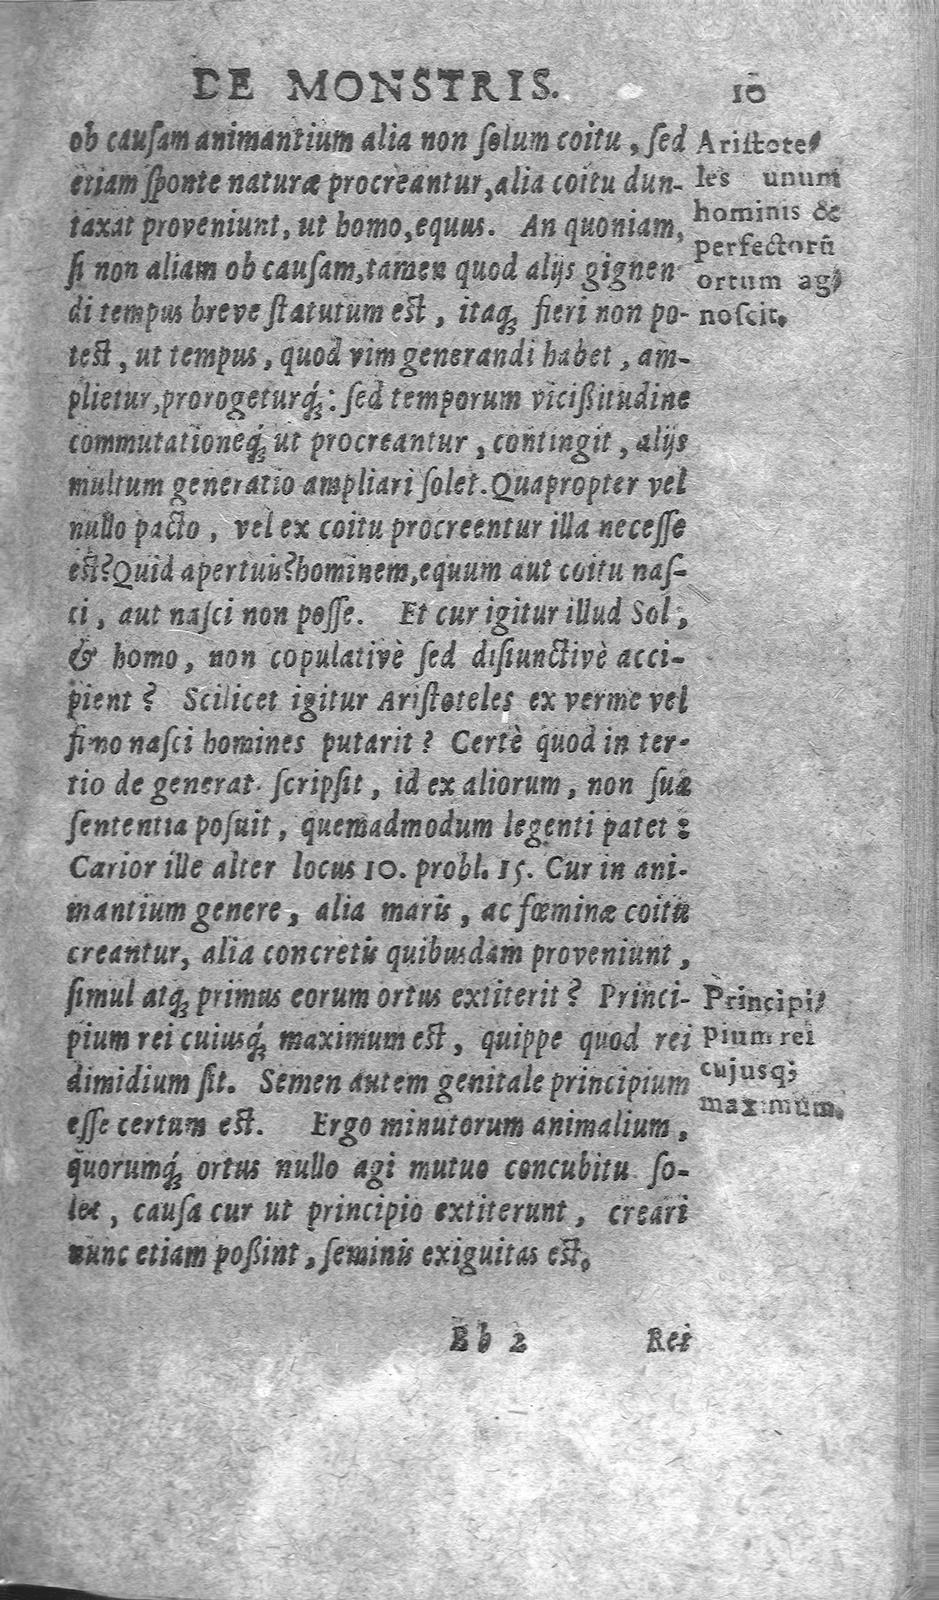 DE MONSTRIS. 10
ob causam animantium alia non solum coitu, sed
etiam sponte naturæ procreantur, alia coitu dun-
taxat proveniunt, ut homo, equus. An quoniam,
si non aliam ob causam, tamen quod alijs gignen
di tempus breve statutum est, itaq; fieri non po-
test, ut tempus, quod vim generandi habet, am-
plietur, prorogeturq́;: sed temporum vicißitudine
commutationeq́; ut procreantur, contingit, alijs
multum generatio ampliari solet. Quapropter vel
nullo pacto, vel ex coitu procreentur illa necesse
est? Quid apertius? hominem, equum aut coitu nas-
ci, aut nasci non posse. Et cur igitur illud Sol,
& homo, non copulativè sed disiunctivè acci-
pient? Scilicet igitur Aristoteles ex verme vel
fimo nasci homines putarit? Certè quod in ter-
tio de generat. scripsit, id ex aliorum, non sua
sententia posuit, quemadmodum legenti patet:
Carior ille alter locus 10. probl. 15. Cur in ani-
mantium genere, alia maris, ac fœminæ coitu
creantur, alia concretis quibusdam proveniunt,
simul atq; primus eorum ortus extiterit? Princi-
pium rei cuiusq́; maximum est, quippe quod rei
dimidium sit. Semen autem genitale principium
esse certum est. Ergo minutorum animalium,
quorumq́; ortus nullo agi mutuo concubitu so-
let, causa cur ut principio extiterunt, creari
nunc etiam poßint, seminis exiguitas est.
Bb 2 Rei
Aristote-
les unum
hominis &
perfectorū
ortum ag-
noscit.
Principi-
pium rei
cujusq;
maximum.